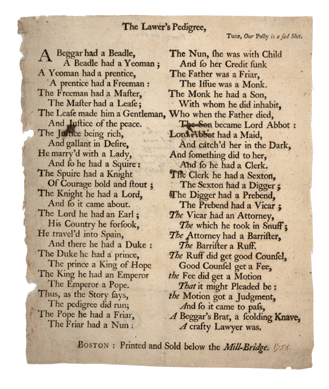 The Lawer's Pedigree,
Tune, Our Polly is a sad Slut.
A Beggar had a Beadle,
A Beadle had a Yeoman;
A Yeoman had a prentice,
A prentice had a Freeman:
The Freeman had a Master,
The Master had a Lease;
The Lease made him a Gentleman,
And Justice of the peace.
The Justice being rich,
And gallant in Desire,
He marry'd with a Lady,
And so he had a Squire:
The Squire had a Knight
Of Courage bold and stout;
The Knight he had a Lord,
And so it came about.
The Lord he had an Earl;
His Country he forsook,
He travel'd into Spain,
And there he had a Duke:
The Duke he had a prince,
The prince a King of Hope
The King he had an Emperor
The Emperor a Pope.
Thus, as the Story says,
The pedigree did run;
The Pope he had a Friar,
The Friar had a Nun:
The Nun, she was with Child
And so her Credit sunk
The Father was a Friar,
The Issue was a Monk.
The Monk he had a Son,
With whom he did inhabit,
Who when the Father died,
The Son became Lord Abbot:
Lord Abbot had a Maid,
And catch'd her in the Dark,
And something did to her,
And so he had a Clerk.
The Clerk he had a Sexton,
The Sexton had a Digger;
The Digger had a Prebend,
The Prebend had a Vicar;
The Vicar had an Attorney,
The which he took in Snuff;
The Attorney had a Barrister,
The Barrister a Ruff.
The Ruff did get good Counsel,
Good Counsel get a Fee,
the Fee did get a Motion
That it might Pleaded be:
the Motion got a Judgment,
And so it came to pass,
A Beggar's Brat, a scolding Knave,
A crafty Lawyer was.
BOSTON: Printed and Sold below the Mill-Bridge.